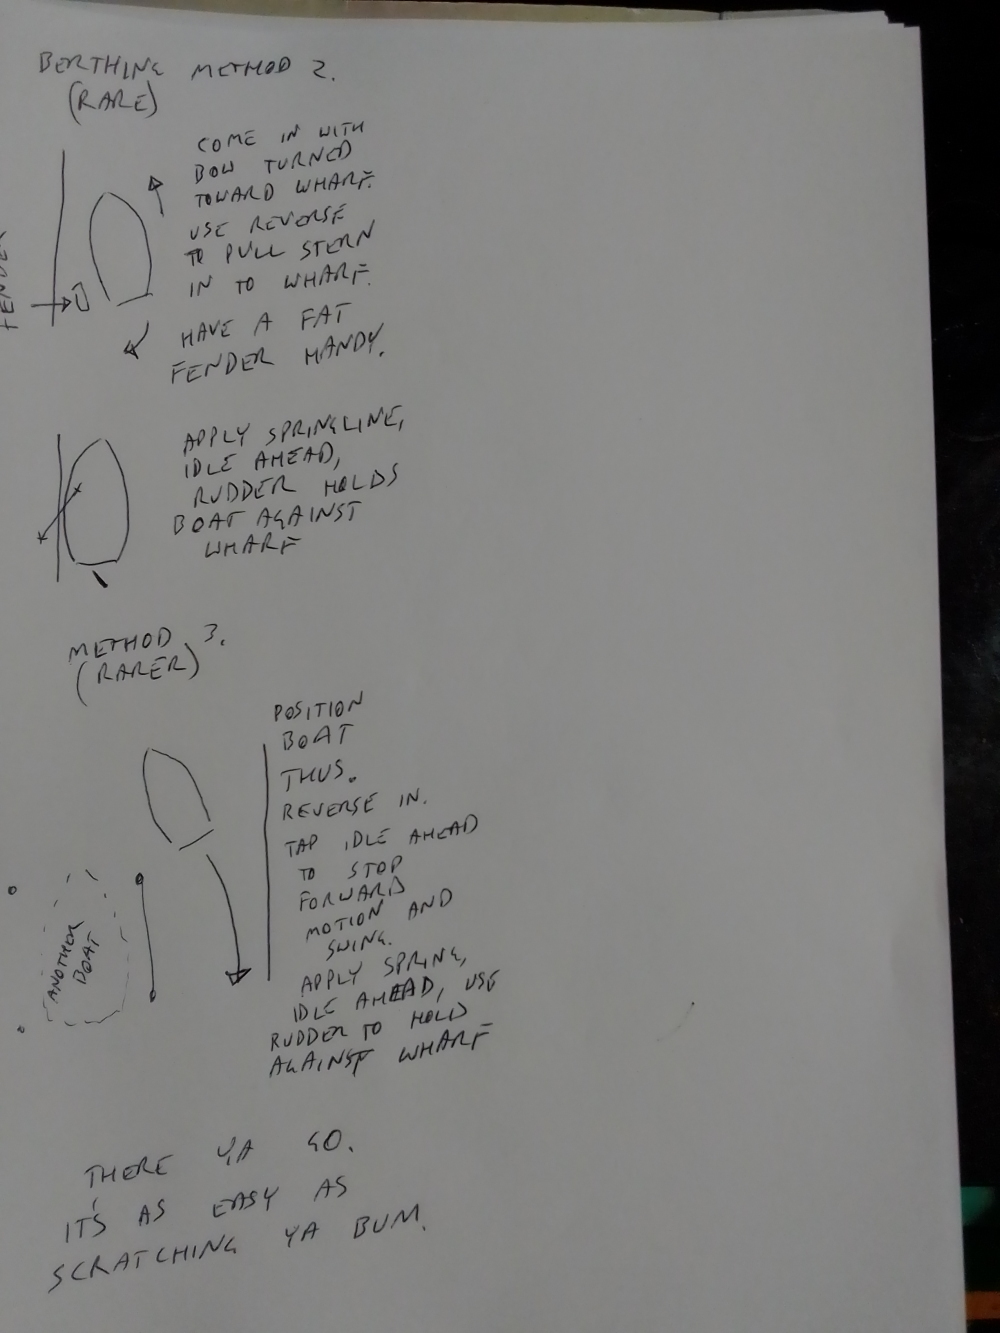 BERTHING METHOD 2.
(RARE)
COME IN WITH
BOW TURNED
TOWARD WHARF.
USE REVERSE
TO PULL STERN
IN TO WHARF.
HAVE A FAT
FENDER HANDY.
FENDER
APPLY SPRINGLINE,
IDLE AHEAD,
RUDDER HOLDS
BOAT AGAINST
WHARF
METHOD 3.
(RARER)
POSITION
BOAT
THUS.
REVERSE IN.
TAP IDLE AHEAD
TO STOP
FORWARD
MOTION AND
SWING.
APPLY SPRING,
IDLE AHEAD, USE
RUDDER TO HOLD
AGAINST WHARF
ANOTHER
BOAT
THERE YA GO.
IT'S AS EASY AS
SCRATCHING YA BUM.